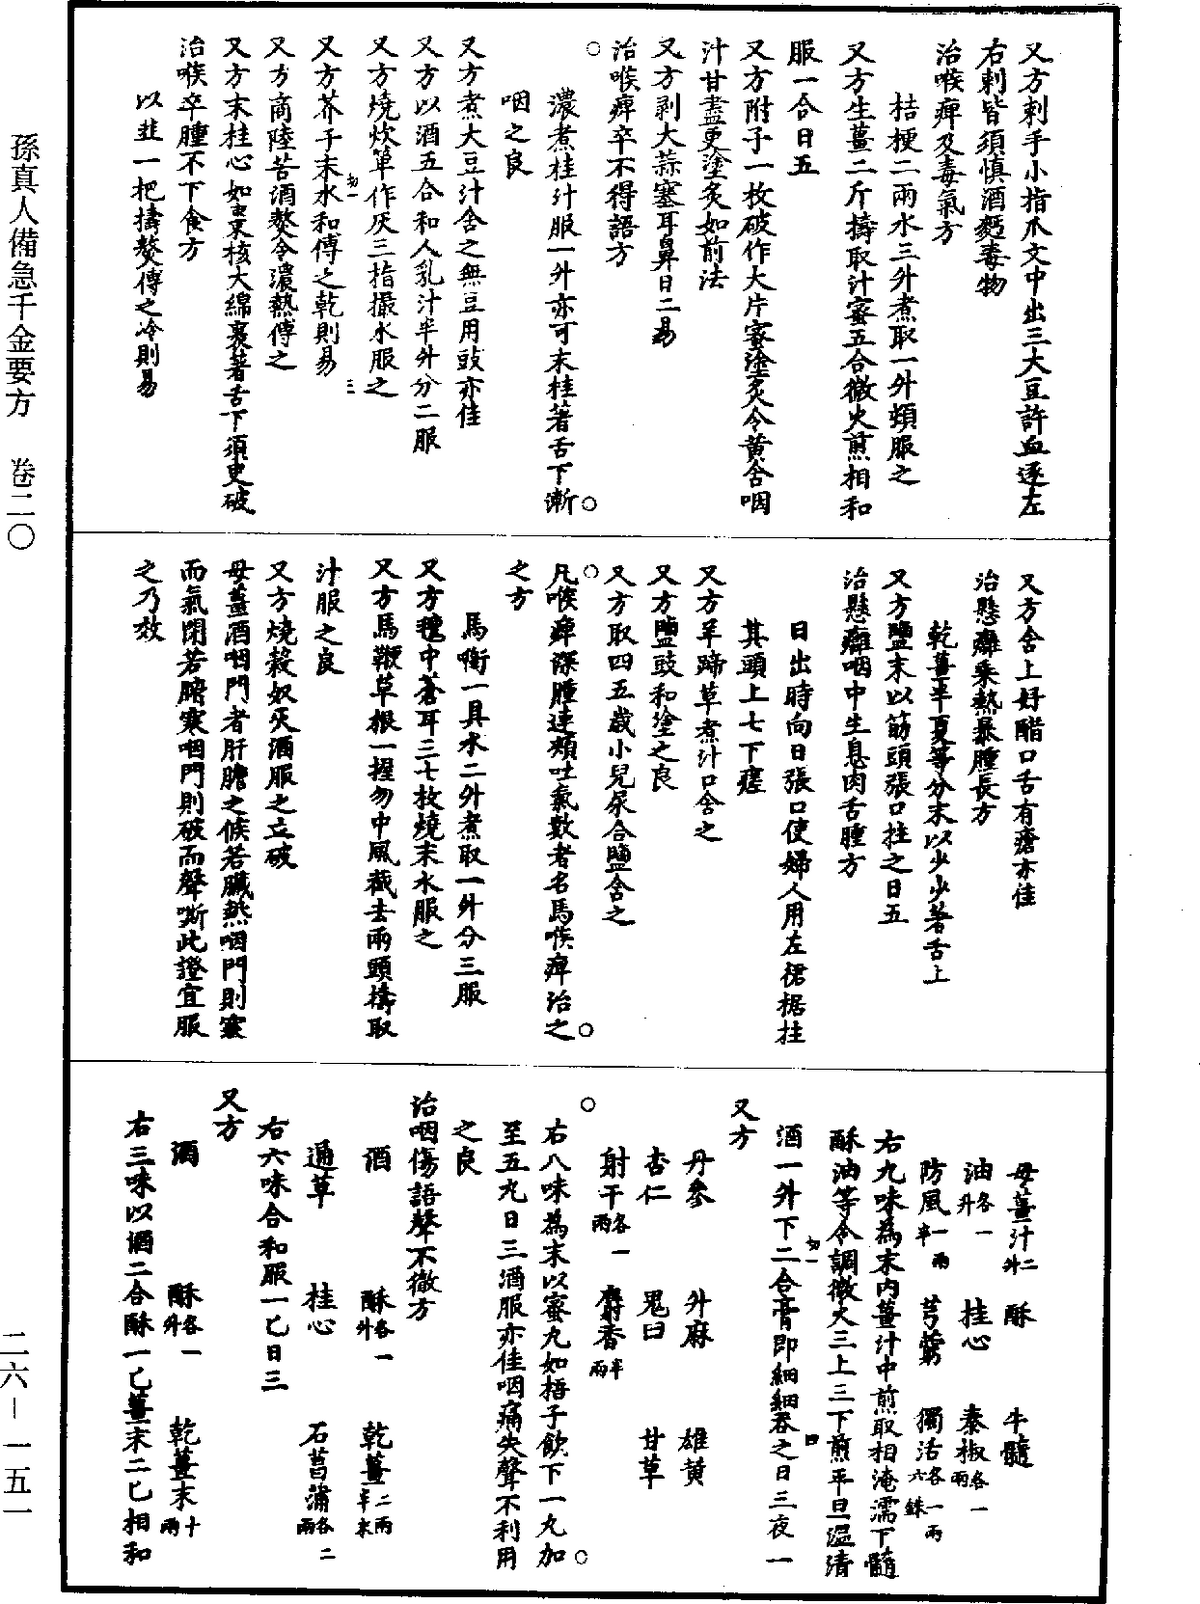 孫真人備急千金要方　卷二〇
又方刺手小指爪文中出三大豆許血逐左
右刺皆須慎酒麪毒物
治喉痹及毒氣方
桔梗二兩水三升煮取一升頓服之
又方生薑二斤擣取汁蜜五合微火煎相和
服一合日五
又方附子一枚破作大片蜜塗炙令黃含咽
汁甘盡更塗炙如前法
又方剥大蒜塞耳鼻日二易
治喉痹卒不得語方
濃煮桂汁服一升亦可末桂著舌下漸
咽之良
又方煮大豆汁含之無豆用豉亦佳
又方以酒五合和人乳汁半升分二服
又方燒炊箄作灰三指撮水服之
又方芥子末水和傅之乾則易
又方商陸苦酒熬令濃熱傅之
又方末桂心如棗核大綿裹著舌下須臾破
治喉卒腫不下食方
以韭一把擣熬傅之冷則易
又方含上好醋口舌有瘡亦佳
治懸癰㕮熱暴腫長方
乾薑半夏等分末以少少著舌上
又方鹽末以筯頭張口拄之日五
治懸癰咽中生息肉舌腫方
日出時向日張口使婦人用左裙裾拄
其頭上七下瘥
又方羊蹄草煮汁口含之
又方鹽豉和塗之良
又方取四五歲小兒尿合鹽含之
凡喉痹深腫連頰吐氣數者名馬喉痹治之
之方
馬銜一具水二升煮取一升分三服
又方氊中蒼耳三七枚燒末水服之
又方馬鞭草根一握勿中風截去兩頭擣取
汁服之良
又方燒穀奴灰酒服之立破
母薑酒咽門者肝膽之候若臟熱咽門則塞
而氣閉若腑寒咽門則破而聲嘶此證宜服
之乃效
母薑汁二升　酥　牛髓
油各一升　桂心　秦椒各一兩
防風一兩半　芎藭　獨活各一兩六銖
右九味為末內薑汁中煎取相淹濡下髓
酥油等令調微火三上三下煎平旦溫清
酒一升下二合膏即細細吞之日三夜一
又方
丹參　升麻　雄黃
杏仁　鬼臼　甘草
射干各一兩　麝香半兩
右八味為末以蜜丸如梧子飲下一丸加
至五丸日三酒服亦佳咽痛失聲不利用
之良
治咽傷語聲不徹方
酒　酥各一升　乾薑二兩半末
通草　桂心　石菖蒲各二兩
右六味合和服一匕日三
又方
酒　酥各一升　乾薑末十兩
右三味以酒二合酥一匕薑末二匕相和
二六－一五一